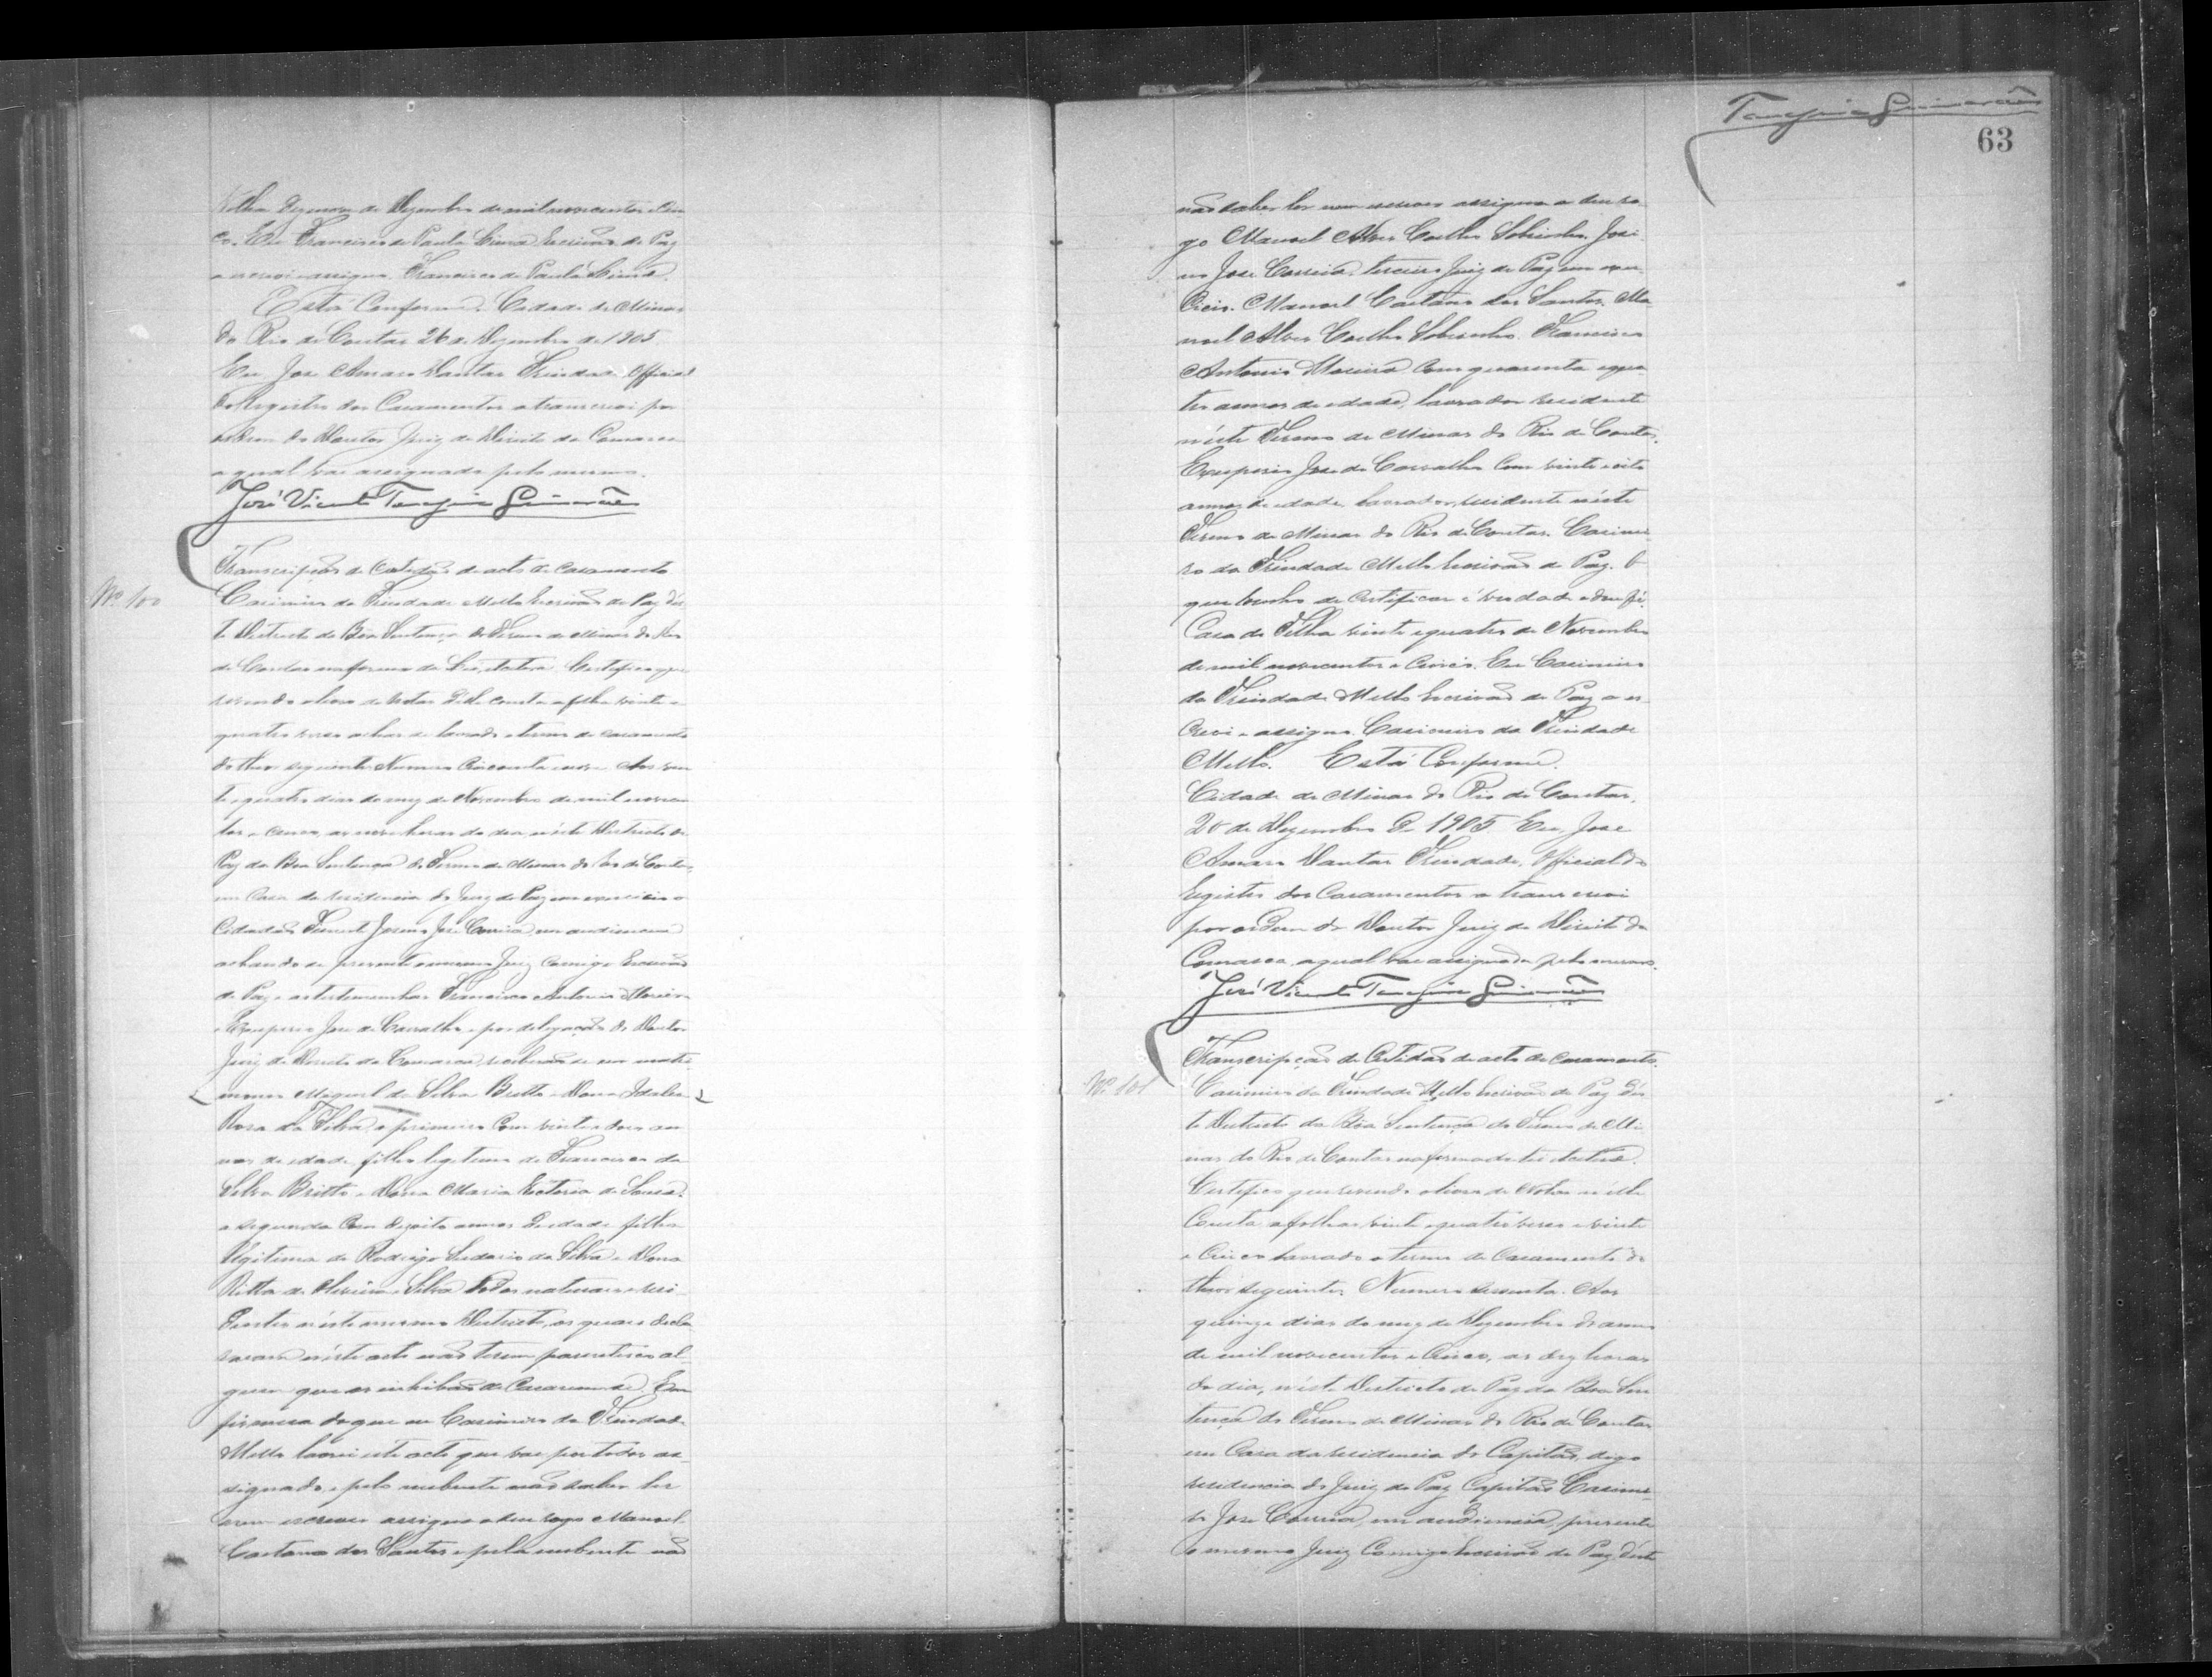 Villa dezenove de Dezembro de mil novecentos e cin
co. Eu Francisco de Paula Lima Escrivão de Paz
o escrevi e assigno. Francisco de Paula Lima.
Está Conforme. Cidade de Minas
do Rio de Contas 26 de Dezembro de 1905.
Eu José Amaro Dantas Trindade Official
do Registro dos Casamentos a transcrevi por
ordem do Doutor Juiz de Direito da Comarca
a qual vae assignada pelo mesmo.
José Vicente Guimarães
Transcripção de Certidão de acto de casamento
Nº 100
Casimiro da Trindade Mello Escrivão de Paz dés
te Districto da Bôa Sentença do Termo de Minas do Rio
de Contas na forma da Lei, etc. Certifico que
revendo o livro de notas d'elle consta a folha vinte e
quatro verso achar-se lavrado o termo de casamento
do theor seguinte Numero Cincoenta e nove Aos vin
te e quatro dias do mez de Novembro de mil novecen
tos e cinco, as nove horas do dia, n'éste Districto de
Paz da Bôa Sentença do Termo de Minas do Rio de Contas,
em Casa da residencia do Juiz de Paz em exercicio o
Cidadão Tenente José Correia, em audiencia
achando-se presente o mesmo Juiz Comigo Escrivão
de Paz e as testemunhas Francisco Antonio Moreira
e Exuperio José de Carvalho e por delegação do Doutor
Juiz de Direito da Comarca, receberão-se em matri
monio Miguel da Silva Britto e Dona Idalia
Rosa da Silva, o primeiro Com vinte e dois an
nos de edade, filho legitimo de Francisco da
Silva Britto e Dona Maria de Souza.
a segunda Com dezoito annos de edade filha
legitima de Rodrigo da Silva e Dona
Ritta de Oliveira e Silva todos naturaes e resi
dentes n'éste mesmo Districto, os quaes decla
rarão n'éste acto não terem parentesco al
gum que os inhibão de Casarem-se. Em
firmeza do que eu Casimiro da Trindade
Mello lavrei este acto que vae por todos as
signado, e pelo nubente não saber ler
nem escrever assigna a seu rogo Manoel
Caetano dos Santos e pela nubente não
63
não saber ler nem escrever assigna a seu ro
go Manoel Alves Coelho Sobrinho. José
no José Correia, terceiro Juiz de Paz em exer
cicio. Manoel Caetano dos Santos. Ma
noel Alves Coelho Sobrinho. Francisco
Antonio Moreira Com quarenta e qua
tro annos de edade, lavrador residente
n'éste Termo de Minas do Rio de Contas.
Exuperio José de Carvalho Com vinte e oito
annos de edade, lavrador, residente n'éste
Termo de Minas do Rio de Contas. Casimi
ro da Trindade Mello Escrivão de Paz. O
que tenho de Certificar é verdade e dou fé.
Casa da Telha vinte e quatro de Novembro
de mil novecentos e Cinco. Eu Casimiro
da Trindade Mello Escrivão de Paz o es
crevi e assigno. Casimiro da Trindade
Mello. Está Conforme.
Cidade de Minas do Rio de Contas,
20 de Dezembro de 1905 Eu, José
Amaro Dantas Trindade, Official do
Registro dos Casamentos a transcrevi
por ordem do Doutor Juiz de Direito da
Comarca, a qual vae assignada pelo mesmo.
José Vicente Guimarães
Transcripção de Certidão de acto de Casamento.
Nº 101
Casimiro da Trindade Mello Escrivão de Paz dés
te Districto da Bôa Sentença do Termo de Mi
nas do Rio de Contas na forma da lei etc.
Certifico que revendo o livro de Notas n'elle
Consta, a folhas vinte e quatro verso e vinte
e Cinco lavrado o termo de Casamento do
theor seguinte. Numero sessenta. Aos
quinze dias do mez de Dezembro do anno
de mil novecentos e Cinco, as dez horas
do dia, n'éste Districto de Paz da Bôa Sen
tença do Termo de Minas do Rio de Contas
em Casa da residencia do Capitão, digo
residencia do Juiz de Paz Capitão Casimi
ro José Correia, em audiencia, presente
o mesmo Juiz Comigo Escrivão de Paz déste